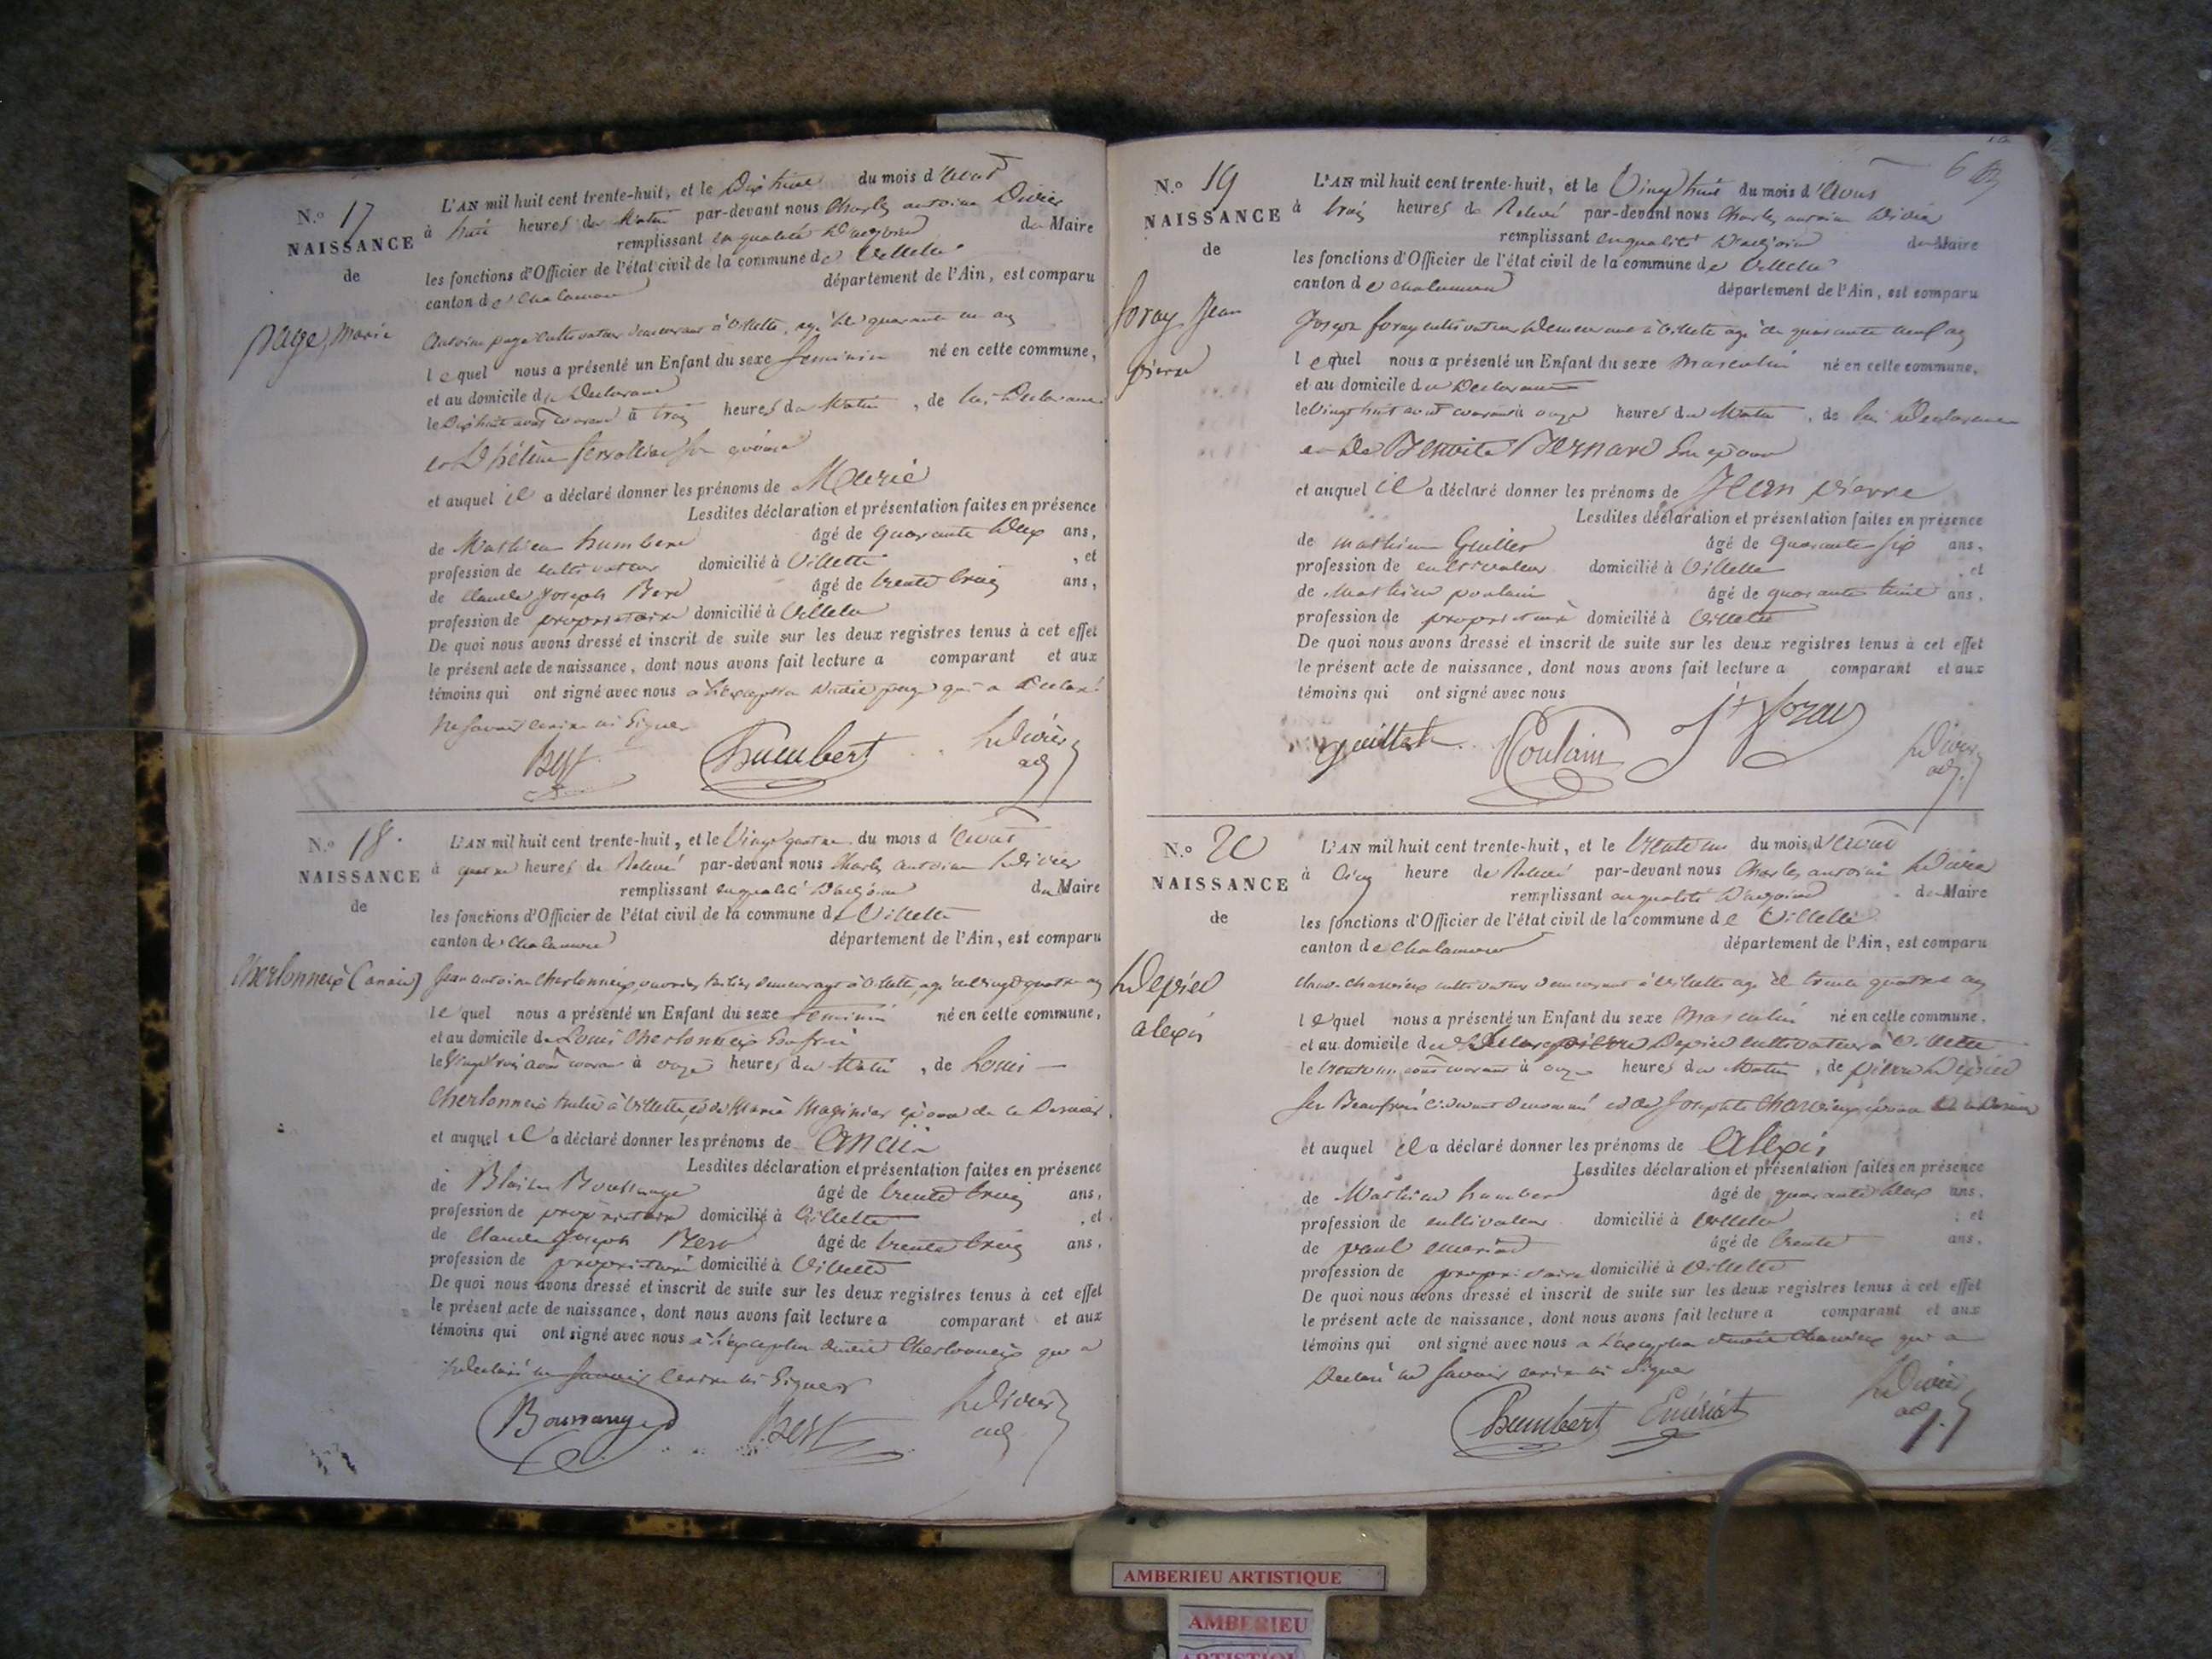 N.o 17
NAISSANCE
de
page, Marie
L'AN mil huit cent trente-huit, et le Dix huit du mois d'Aout
à huit heures du Matin par-devant nous Charles antoine Divier
remplissant en qualité D'adjoint du Maire
les fonctions d'Officier de l'état civil de la commune de Villette
canton de Chalamont département de l'Ain, est comparu
Antoine page Cultivateur demeurant à Villette, agé de quarante un ans
lequel nous a présenté un Enfant du sexe feminin né en cette commune,
et au domicile du Declarant
le Dix huit aout courant à trois heures du Matin, de lui Declarant
et D'hélène son épouse
et auquel il a déclaré donner les prénoms de Marie
Lesdites déclaration et présentation faites en présence
de Mathieu humbert âgé de quarante Deux ans,
profession de cultivateur domicilié à Villette, et
de Claude Joseph Best âgé de trente trois ans,
profession de propriétaire domicilié à Villette
De quoi nous avons dressé et inscrit de suite sur les deux registres tenus à cet effet
le présent acte de naissance, dont nous avons fait lecture a comparant et aux
témoins qui ont signé avec nous à l'exception dudit page qui a Declaré
ne savoir écrire ni Signer
Best Humbert Divier
adj
N.o 18.
NAISSANCE
de
Cherlonneix (anaïs)
L'AN mil huit cent trente-huit, et le Vingt quatre du mois d'Aout
à quatre heures de Relevé par-devant nous Charles Antoine Divier
remplissant en qualité D'adjoint du Maire
les fonctions d'Officier de l'état civil de la commune de Villette
canton de Chalamont département de l'Ain, est comparu
Jean antoine Cherlonneix ouvrier tuilier demeurant à Villette, agé de vingt quatre ans
lequel nous a présenté un Enfant du sexe feminin né en cette commune,
et au domicile de Louis Cherlonneix Son frère
le Vingt trois aout courant à onze heures du Matin, de Louis
Cherlonneix tuilier à Villette, et de Marie Maginier épouse de ce Dernier,
et auquel il a déclaré donner les prénoms de Anaïs
Lesdites déclaration et présentation faites en présence
de Blaise Boussange âgé de trente trois ans,
profession de propriétaire domicilié à Villette, et
de Claude Joseph Best âgé de trente trois ans,
profession de propriétaire domicilié à Villette
De quoi nous avons dressé et inscrit de suite sur les deux registres tenus à cet effet
le présent acte de naissance, dont nous avons fait lecture a comparant et aux
témoins qui ont signé avec nous à l'exception dudit Cherlonneix qui a
Declaré ne savoir écrire ni Signer
Boussange Best Divier
adj
6
N.o 19
NAISSANCE
de
foray Jean
pierre
L'AN mil huit cent trente-huit, et le Vingt huit du mois d'Aout
à trois heures de Relevé par-devant nous Charles antoine Divier
remplissant en qualité D'adjoint du Maire
les fonctions d'Officier de l'état civil de la commune de Villette
canton de Chalamont département de l'Ain, est comparu
Joseph foray cultivateur demeurant à Villette agé de quarante neuf ans
lequel nous a présenté un Enfant du sexe masculin né en cette commune,
et au domicile du Declarant
le Vingt huit aout courant à onze heures du Matin, de lui Declarant
et de Benoite Bernard Son épouse
et auquel il a déclaré donner les prénoms de Jean pierre
Lesdites déclaration et présentation faites en présence
de mathieu Guillet âgé de quarante six ans,
profession de cultivateur domicilié à Villette, et
de Mathieu poulain âgé de quarante huit ans,
profession de propriétaire domicilié à Villette
De quoi nous avons dressé et inscrit de suite sur les deux registres tenus à cet effet
le présent acte de naissance, dont nous avons fait lecture a comparant et aux
témoins qui ont signé avec nous
Poulain Jh foray Divier
adj.
N.o 20
NAISSANCE
de
Depied
alexis
L'AN mil huit cent trente-huit, et le trente un du mois d'Aout
à cinq heure de Relevé par-devant nous Charles antoine Divier
remplissant en qualité D'adjoint du Maire
les fonctions d'Officier de l'état civil de la commune de Villette
canton de Chalamont département de l'Ain, est comparu
cultivateur demeurant à Villette agé de trente quatre ans
lequel nous a présenté un Enfant du sexe Masculin né en cette commune,
et au domicile de pierre Depied Cultivateur à Villette
le trente un aout courant à onze heures du Matin, de pierre Depied
Son Beaufrère ci devant denommé et de Josephte épouse de ce Dernier
et auquel il a déclaré donner les prénoms de Alexis
Lesdites déclaration et présentation faites en présence
de Mathieu humbert âgé de quarante deux ans,
profession de cultivateur domicilié à Villette, et
de paul âgé de trente ans,
profession de propriétaire domicilié à Villette
De quoi nous avons dressé et inscrit de suite sur les deux registres tenus à cet effet
le présent acte de naissance, dont nous avons fait lecture a comparant et aux
témoins qui ont signé avec nous a l'exception dudit qui a
Declaré ne savoir écrire ni signer
Humbert Divier
adj.
AMBERIEU ARTISTIQUE
AMBERIEU
ARTISTIQUE